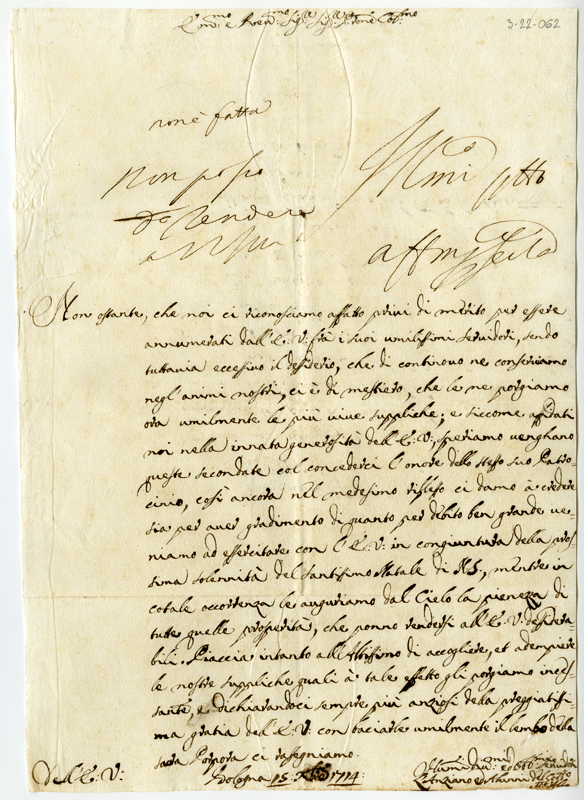 3-22-062
Em.mo e Rev.mo Sig.r Sig.r Prone Col.mo
non è fatta
Non ostante, che noi ci riconosciamo affatto privi di merito per essere
annumerati dall'E. V. frà i suoi umilissimi servidori, sendo
tuttavia eccessivo il desiderio, che di continovo ne conserviamo
negl'animi nostri, ci è di mestiero, che le ne porgiamo
ora umilmente le più vive suppliche; e siccome affidati
noi nella innata generosità dell'E. V., speriamo venghano
queste secondate col concederci l'onore dello stesso suo Patro
cinio, così ancora nel medesimo riflesso ci damo à credere
sia per aver gradimento di quanto per debito ben grande ve=
niamo ad essercitare con l'E. V. in congiuntura della pros=
sima solennità del Santissimo Natale di N. S., mentre in
cotale accorrenza le auguriamo dal Cielo la pienezza di
tutte quelle prosperità, che ponno rendersi all'E. V. desidera=
bili. Piaccia intanto all'Altissimo di accogliere, et adempiere
le nostre suppliche quali à tale effetto gli porgiamo inces=
santi, e dichiarandoci sempre più anziosi della preggiatissi=
ma gratia dell'E. V. con baciarle umilmente il lembo della
sacra Porpora ci rassegniamo.
Dell'E. V.
Bologna 15 Xbre 1714